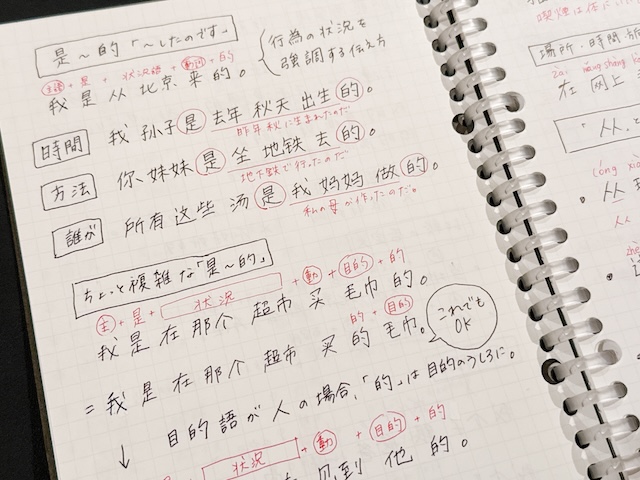 是〜的「〜したのです」
行為の状況を
強調する伝え方
主語 + 是 + 状況語 + 動詞 + 的
我 是 从 北京 来 的。
時間 我 孙子 是 去年 秋天 出生 的。
昨年秋に生まれたのだ
方法 你 妹妹 是 坐 地铁 去 的。
地下鉄で行ったのだ
誰が 所有 这些 汤 是 我 妈妈 做 的。
私の母が作ったのだ。
ちょっと複雑な「是〜的」
主 + 是 + 状況 + 動 + 目的 + 的
我 是 在 那个 超市 买 毛巾 的。
的 + 目的
= 我 是 在 那个 超市 买 的 毛巾。
これでも
OK
目的語が人の場合、「的」は目的のうしろに。
↓
状況 + 動 + 目的 + 的
见到 他 的。
場所・時間
zai wǎng shang
在 网上
「从
从